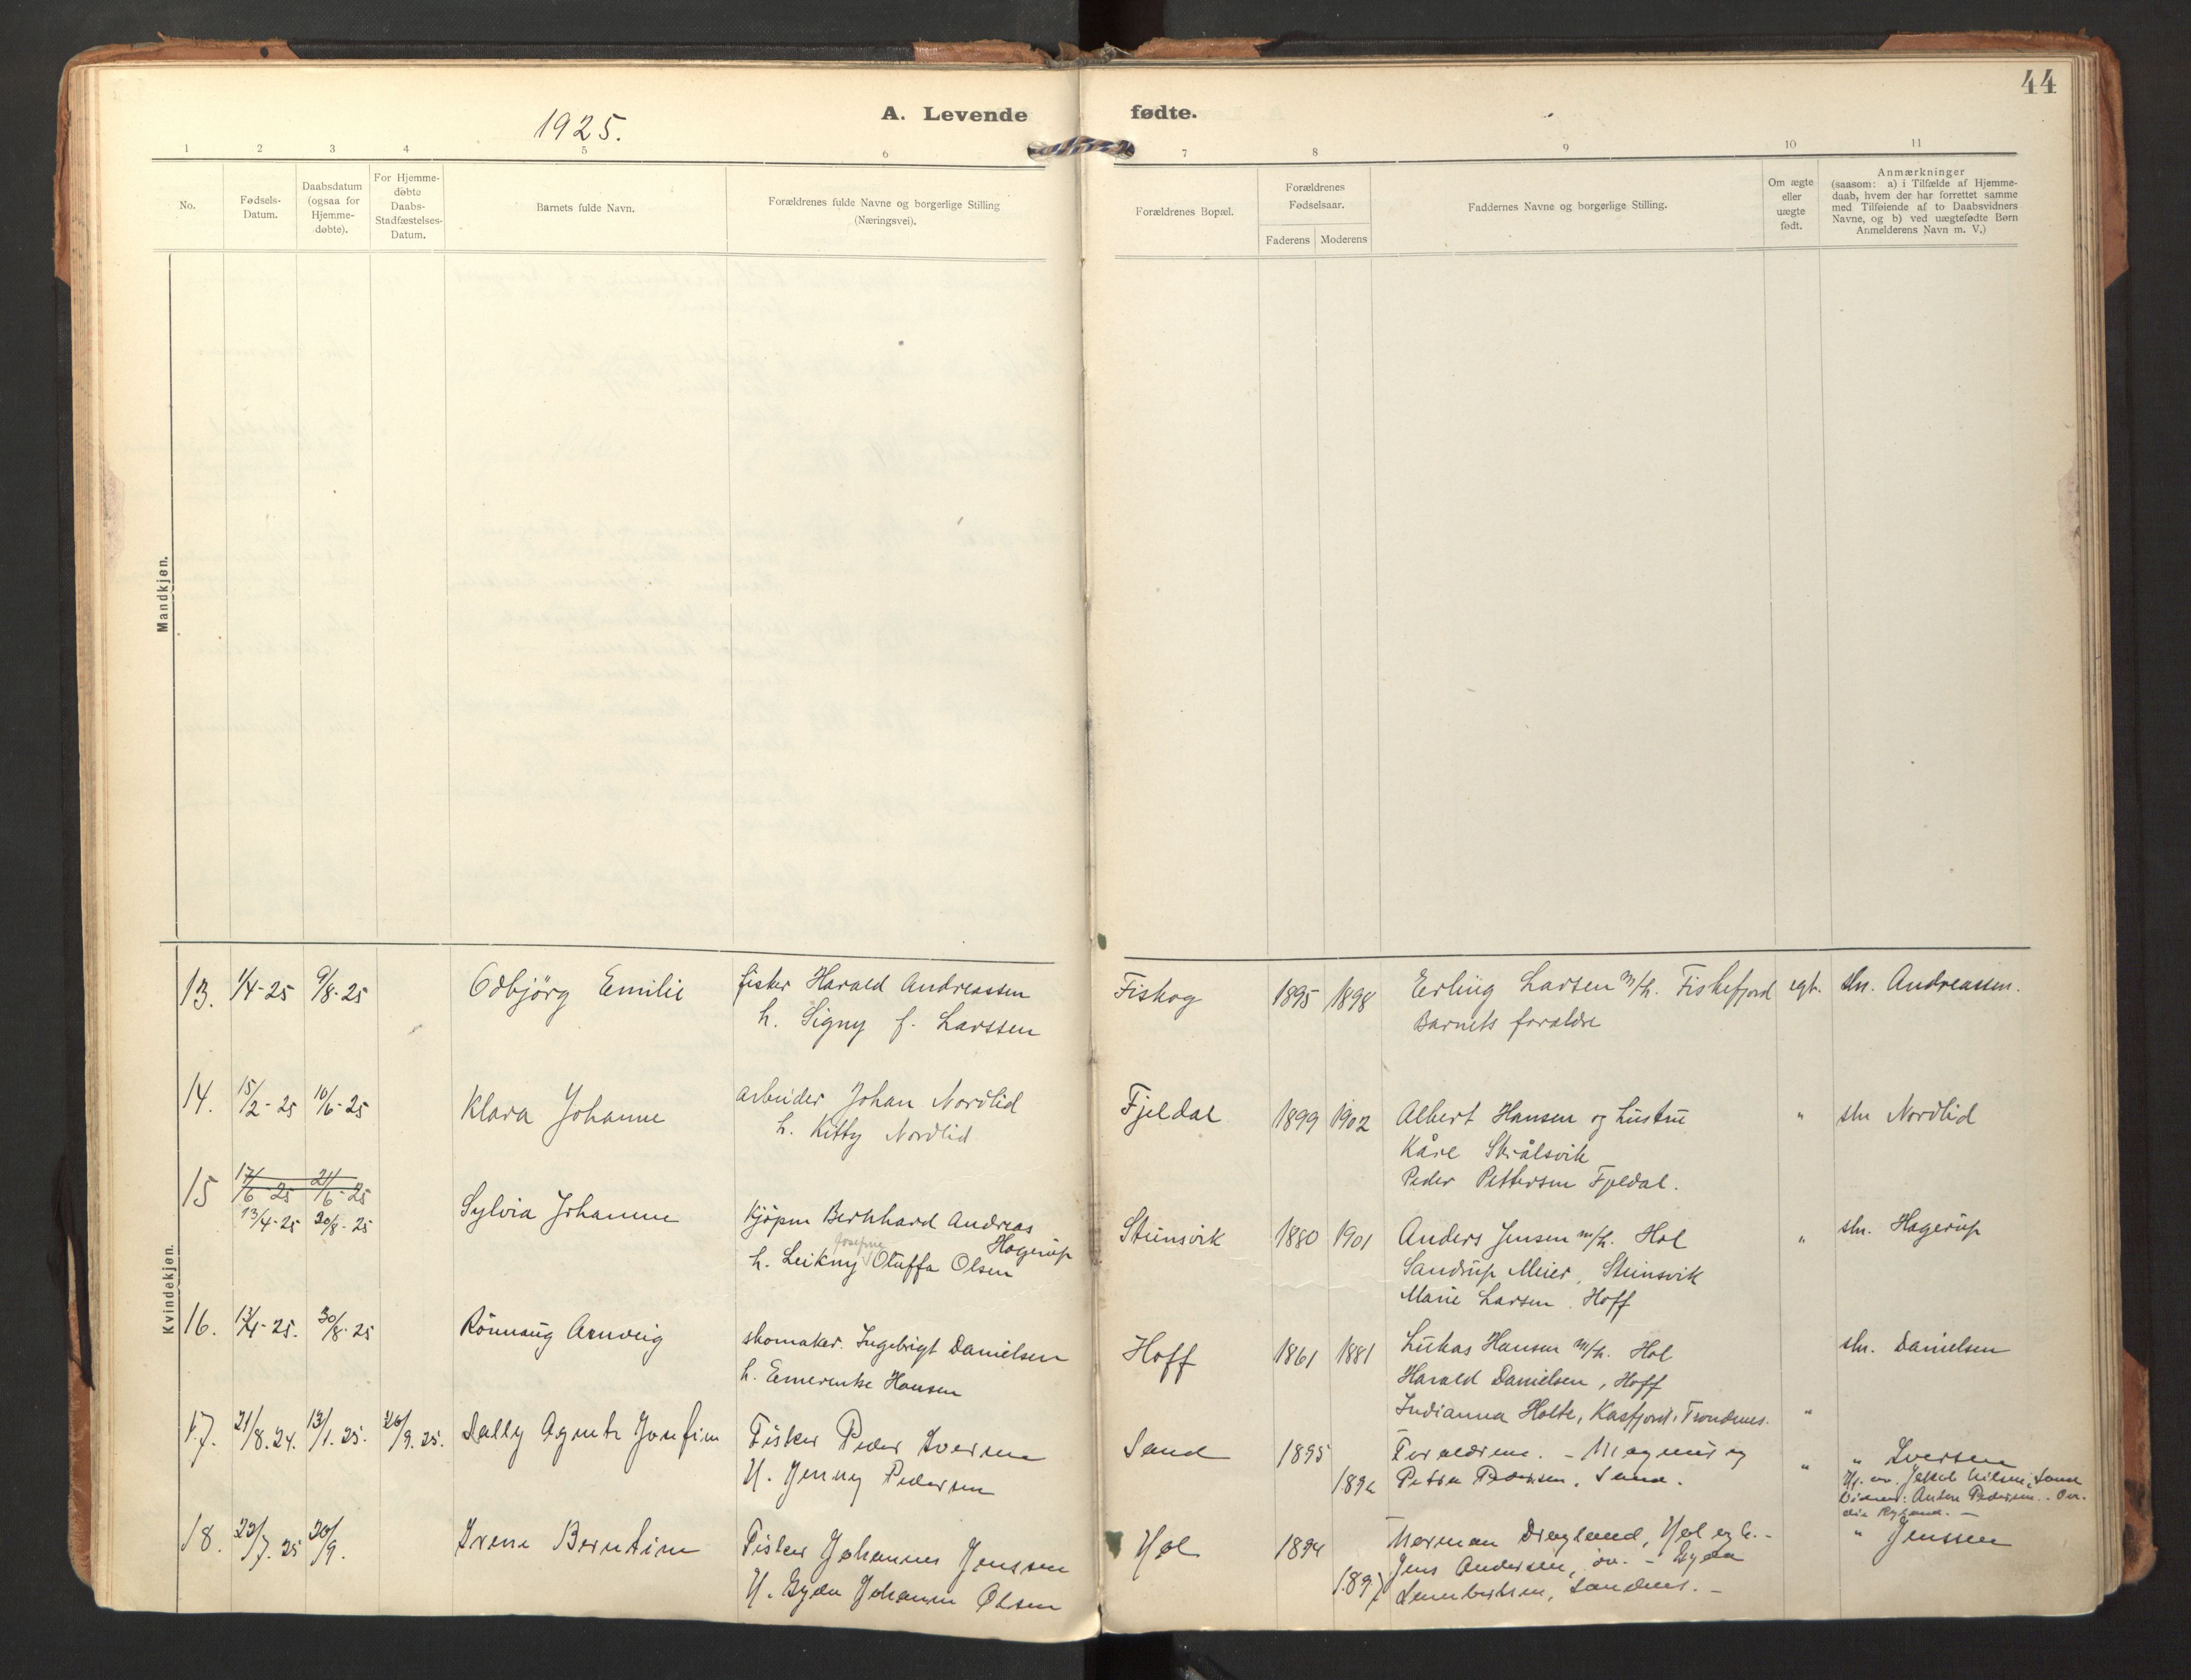 44
1925.
A. Levende fødte.
1 2 3 4 5 6 7 8 9 10 11
No.
Fødsels-
Datum.
Daabsdatum
(ogsaa for
Hjemme-
døbte).
For Hjemme-
døbte
Daabs-
Stadfæstelses-
Datum.
Barnets fulde Navn.
Forældrenes fulde Navne og borgerlige Stilling
(Næringsvei).
Forældrenes Bopæl.
Forældrenes
Fødselsaar.
Faderens Moderens
Faddernes Navne og borgerlige Stilling.
Om ægte
eller
uægte
født.
Anmærkninger
(saasom: a) i Tilfælde af Hjemme-
daab, hvem der har forrettet samme
med Tilføiende af to Daabsvidners
Navne, og b) ved uægtefødte Børn
Anmelderens Navn m. V.)
Mandkjøn.
Kvindekjøn.
13. 1/4-25 9/8-25 Odbjörg Emilie fisker Harald Andreassen Fiskog 1895 1898 Erling Larsen m/h. Fiskefjord egt. sln. Andreassen.
h. Signy f. Larssen Barnets foraldre
14. 15/2-25 10/6-25 Klara Johanne arbeider Johan Nordlid Fjeldal 1899 1902 Albert Hansen og hustru " sln Nordlid
h. Kitty Nordlid Kåre Strålsvik
Peder Pettersen Fjeldal.
15 17/6-25 21/6-25
13/4-25 20/8-25 Sylvia Johanne Kjöpm Bernhard Andreas Steinsvik 1880 1901 Anders Jensen m/h. Hol " sln. Hagerup
Hagerup
Josefine
h. Leikny Oluffa Olsen Sandrup Meier, Steinsvik
Marie Larsen, Hoff
16. 13/4-25. 30/8-25 Rönnaug Arnveig skomaker. Ingebrigt Danielsen Hoff 1861 1881 Lukas Hansen m/h. Hol sln. Danielsen
h. Emerentse Hansen Harald Danielsen, Hoff
Indianna Holte, Kasfjord, Trondenes. "
17. 21/8.24. 13/1.25. 20/9.25. Dally Agnete Josefine Fisker Peder Iversen Sand 1895 Foraldrene. - Magnus og " " Iversen
H. Jenny Pedersen 1892 Petra Pedersen, Sand.
Hj. av. Jakob Nilsen, Sand
Vidner: Anton Pedersen
18. 22/7.25 20/9. Irene Berntine Fisker Johannes Jenssen Hol 1894 Norman Dragland, Hol og h. - " Jenssen
H. Gyda Johanne Olsen 1897 Jens Andersen, - Gyda
Sandnes. -